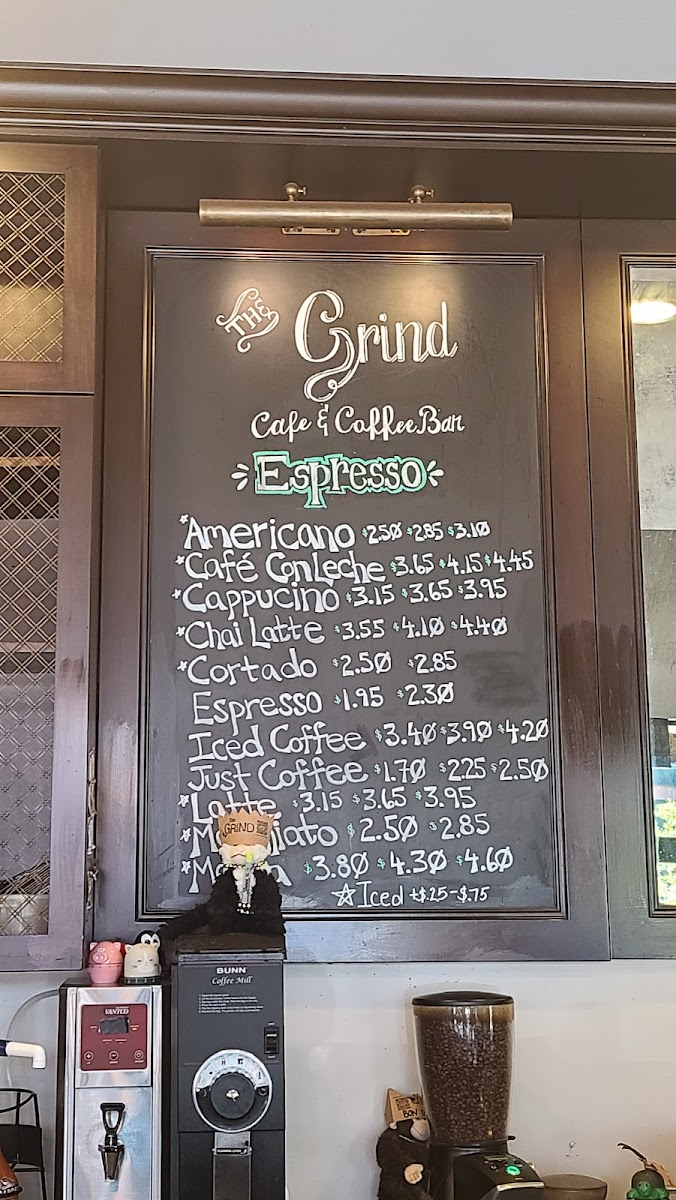 THE Grind
Cafe & Coffee Bar
Espresso
*Americano $2.50 $2.85 $3.10
*Café ConLeche $3.65 $4.15 $4.45
*Cappucino $3.15 $3.65 $3.95
*Chai Latte $3.55 $4.10 $4.40
*Cortado $2.50 $2.85
Espresso $1.95 $2.30
Iced Coffee $3.40 $3.90 $4.20
Just Coffee $1.70 $2.25 $2.50
*Latte $3.15 $3.65 $3.95
$2.50 $2.85
$3.80 $4.30 $4.60
☆Iced +$.25-$.75
GRIND
BUNN
Coffee Mill
VANTCO
BON